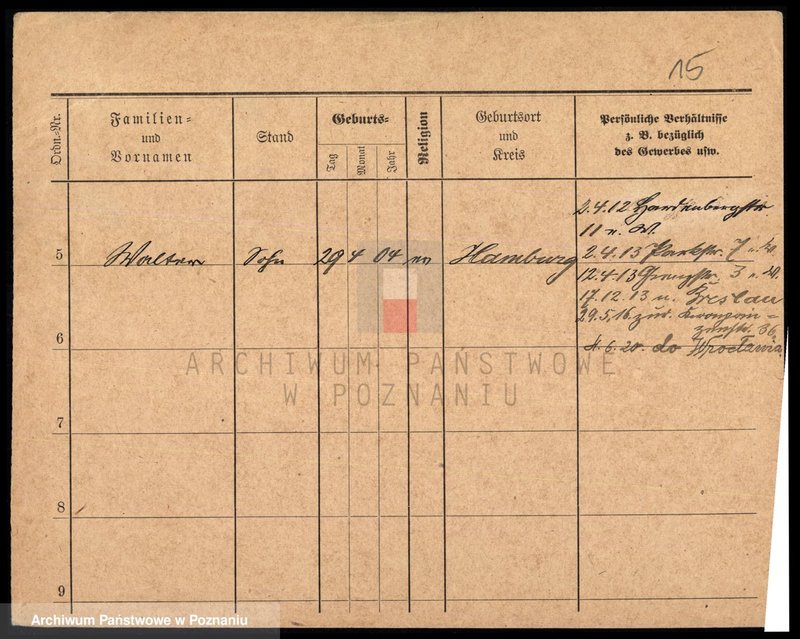 15
Ordn.-Nr.
Familien-
und
Vornamen
Stand
Geburts-
Tag
Monat
Jahr
Religion
Geburtsort
und
Kreis
Persönliche Verhältnisse
z. B. bezüglich
des Gewerbes usw.
2.4.12 Hardenbergstr
11 u. W.
5 Walter Sohn 29 4 04 ev Hamburg 2.4.13 Parkstr. 7 u. W.
12.4.13 3 u. W.
17.12.13 n. Breslau
29.5.16 zur. Kronprin=
zenstr. 36
6
4.6.20. do Wrocławia
ARCHIWUM PAŃSTWOWE
W POZNANIU
7
8
9
Archiwum Państwowe w Poznaniu